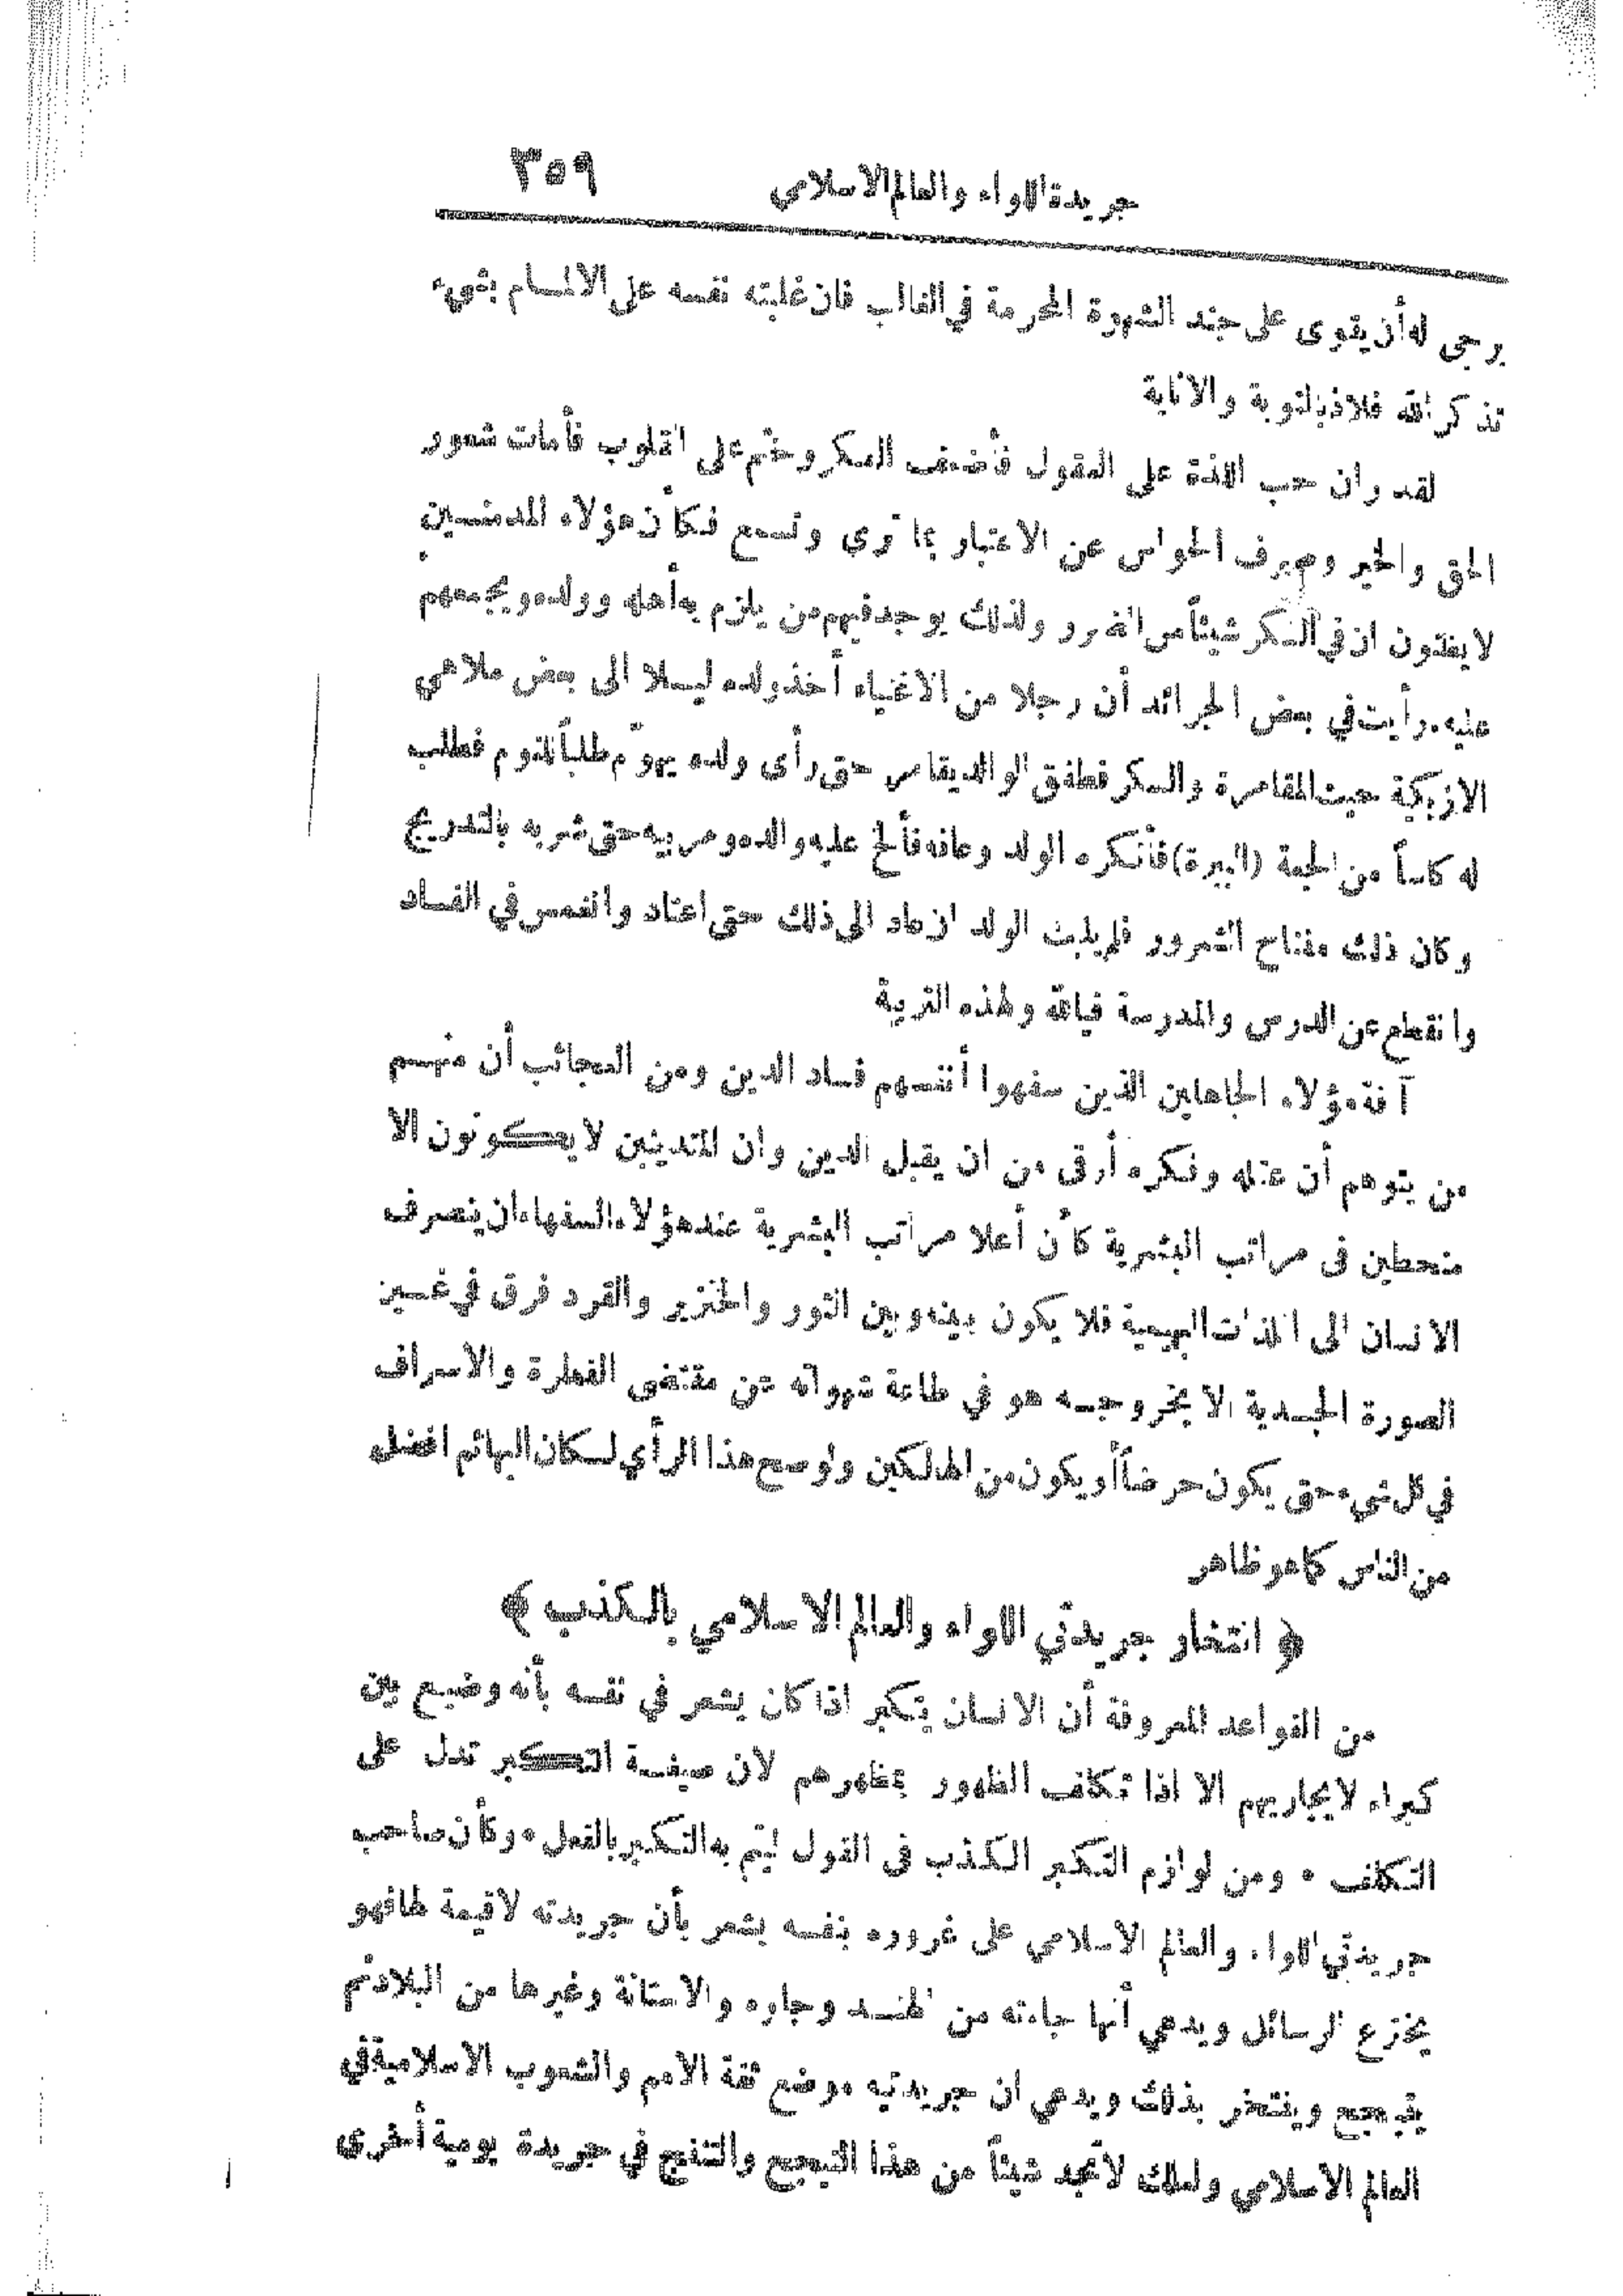 جريدة اللواء والعالم الاسلامي ٣٥٩
يرجى له أن يقوى على جند الشهوة المحرمة في الغالب فان غلبته نفسه على الالمام بشيء
تذكر الله فلاذ بالتوبة والانابة
لقد ران حب اللذة على العقول فأضعف الفكر وختم على القلوب فأمات شعور
الحق والخير وصرف الحواس عن الاعتبار بما ترى وتسمع فكأن هؤلاء المدمنين
لا يعتقدون ان في السكر شيئاً من الضرر ولذلك يوجد فيهم من يلزم به أهله وولده ويجمعهم
عليه. رأيت في بعض الجرائد أن رجلا من الاغنياء أخذ ولده ليلا الى بعض ملاهي
الازبكية حيث المقامرة والسكر فطفق الوالد يقامر حتى رأى ولده يهوّم طلباً للنوم فطلب
له كاساً من الجعة (البيرة) فأنكره الولد وعافه فألح عليه والده ومربيه حتى شربه بالتدريج
وكان ذلك مفتاح الشرور فلم يلبث الولد ان عاد الى ذلك حتى اعتاد وانغمس في الفساد
وانقطع عن الدرس والمدرسة فيالله ولهذه التربية
آفة هؤلاء الجاهلين الذين سفهوا أنفسهم فساد الدين ومن العجائب أن منهم
من يتوهم أن عقله وفكره أرقى من ان يقبل الدين وان المتدينين لا يكونون الا
منحطين فى مراتب البشرية كأن أعلا مراتب البشرية عند هؤلاء السفهاء ان ينصرف
الانسان الى اللذات البهيمية فلا يكون بينه وبين الثور والخنزير والقرد فرق في غير
الصورة الجسدية الا بخروجه هو في طاعة شهواته عن مقتضى الفطرة والاسراف
في كل شيء حتى يكون حرضاً أو يكون من الهالكين ولو صح هذا الرأي لكان البهائم افضل
من الناس كما هو ظاهر
﴿ افتخار جريدتي اللواء والعالم الاسلامي بالكذب ﴾
من القواعد المعروفة أن الانسان يتكبر اذا كان يشعر في نفسه بأنه وضيع بين
كبراء لا يجاريهم الا اذا تكلف الظهور بمظهرهم لان صيغة التكبر تدل على
التكلف . ومن لوازم التكبر الكذب فى القول ليتم به التكبر بالفعل . وكأن صاحب
جريدتي اللواء والعالم الاسلامي على غروره بنفسه يشعر بأن جريدته لا قيمة لها فهو
يخترع الرسائل ويدعي أنها جاءته من الهند وجاوه والاستانة وغيرها من البلاد ثم
يتبجح ويفتخر بذلك ويدعي ان جريدتيه موضع ثقة الامم والشعوب الاسلامية في
العالم الاسلامي ولعلك لا تجد شيئاً من هذا التبجح والتنفج في جريدة يومية أخرى